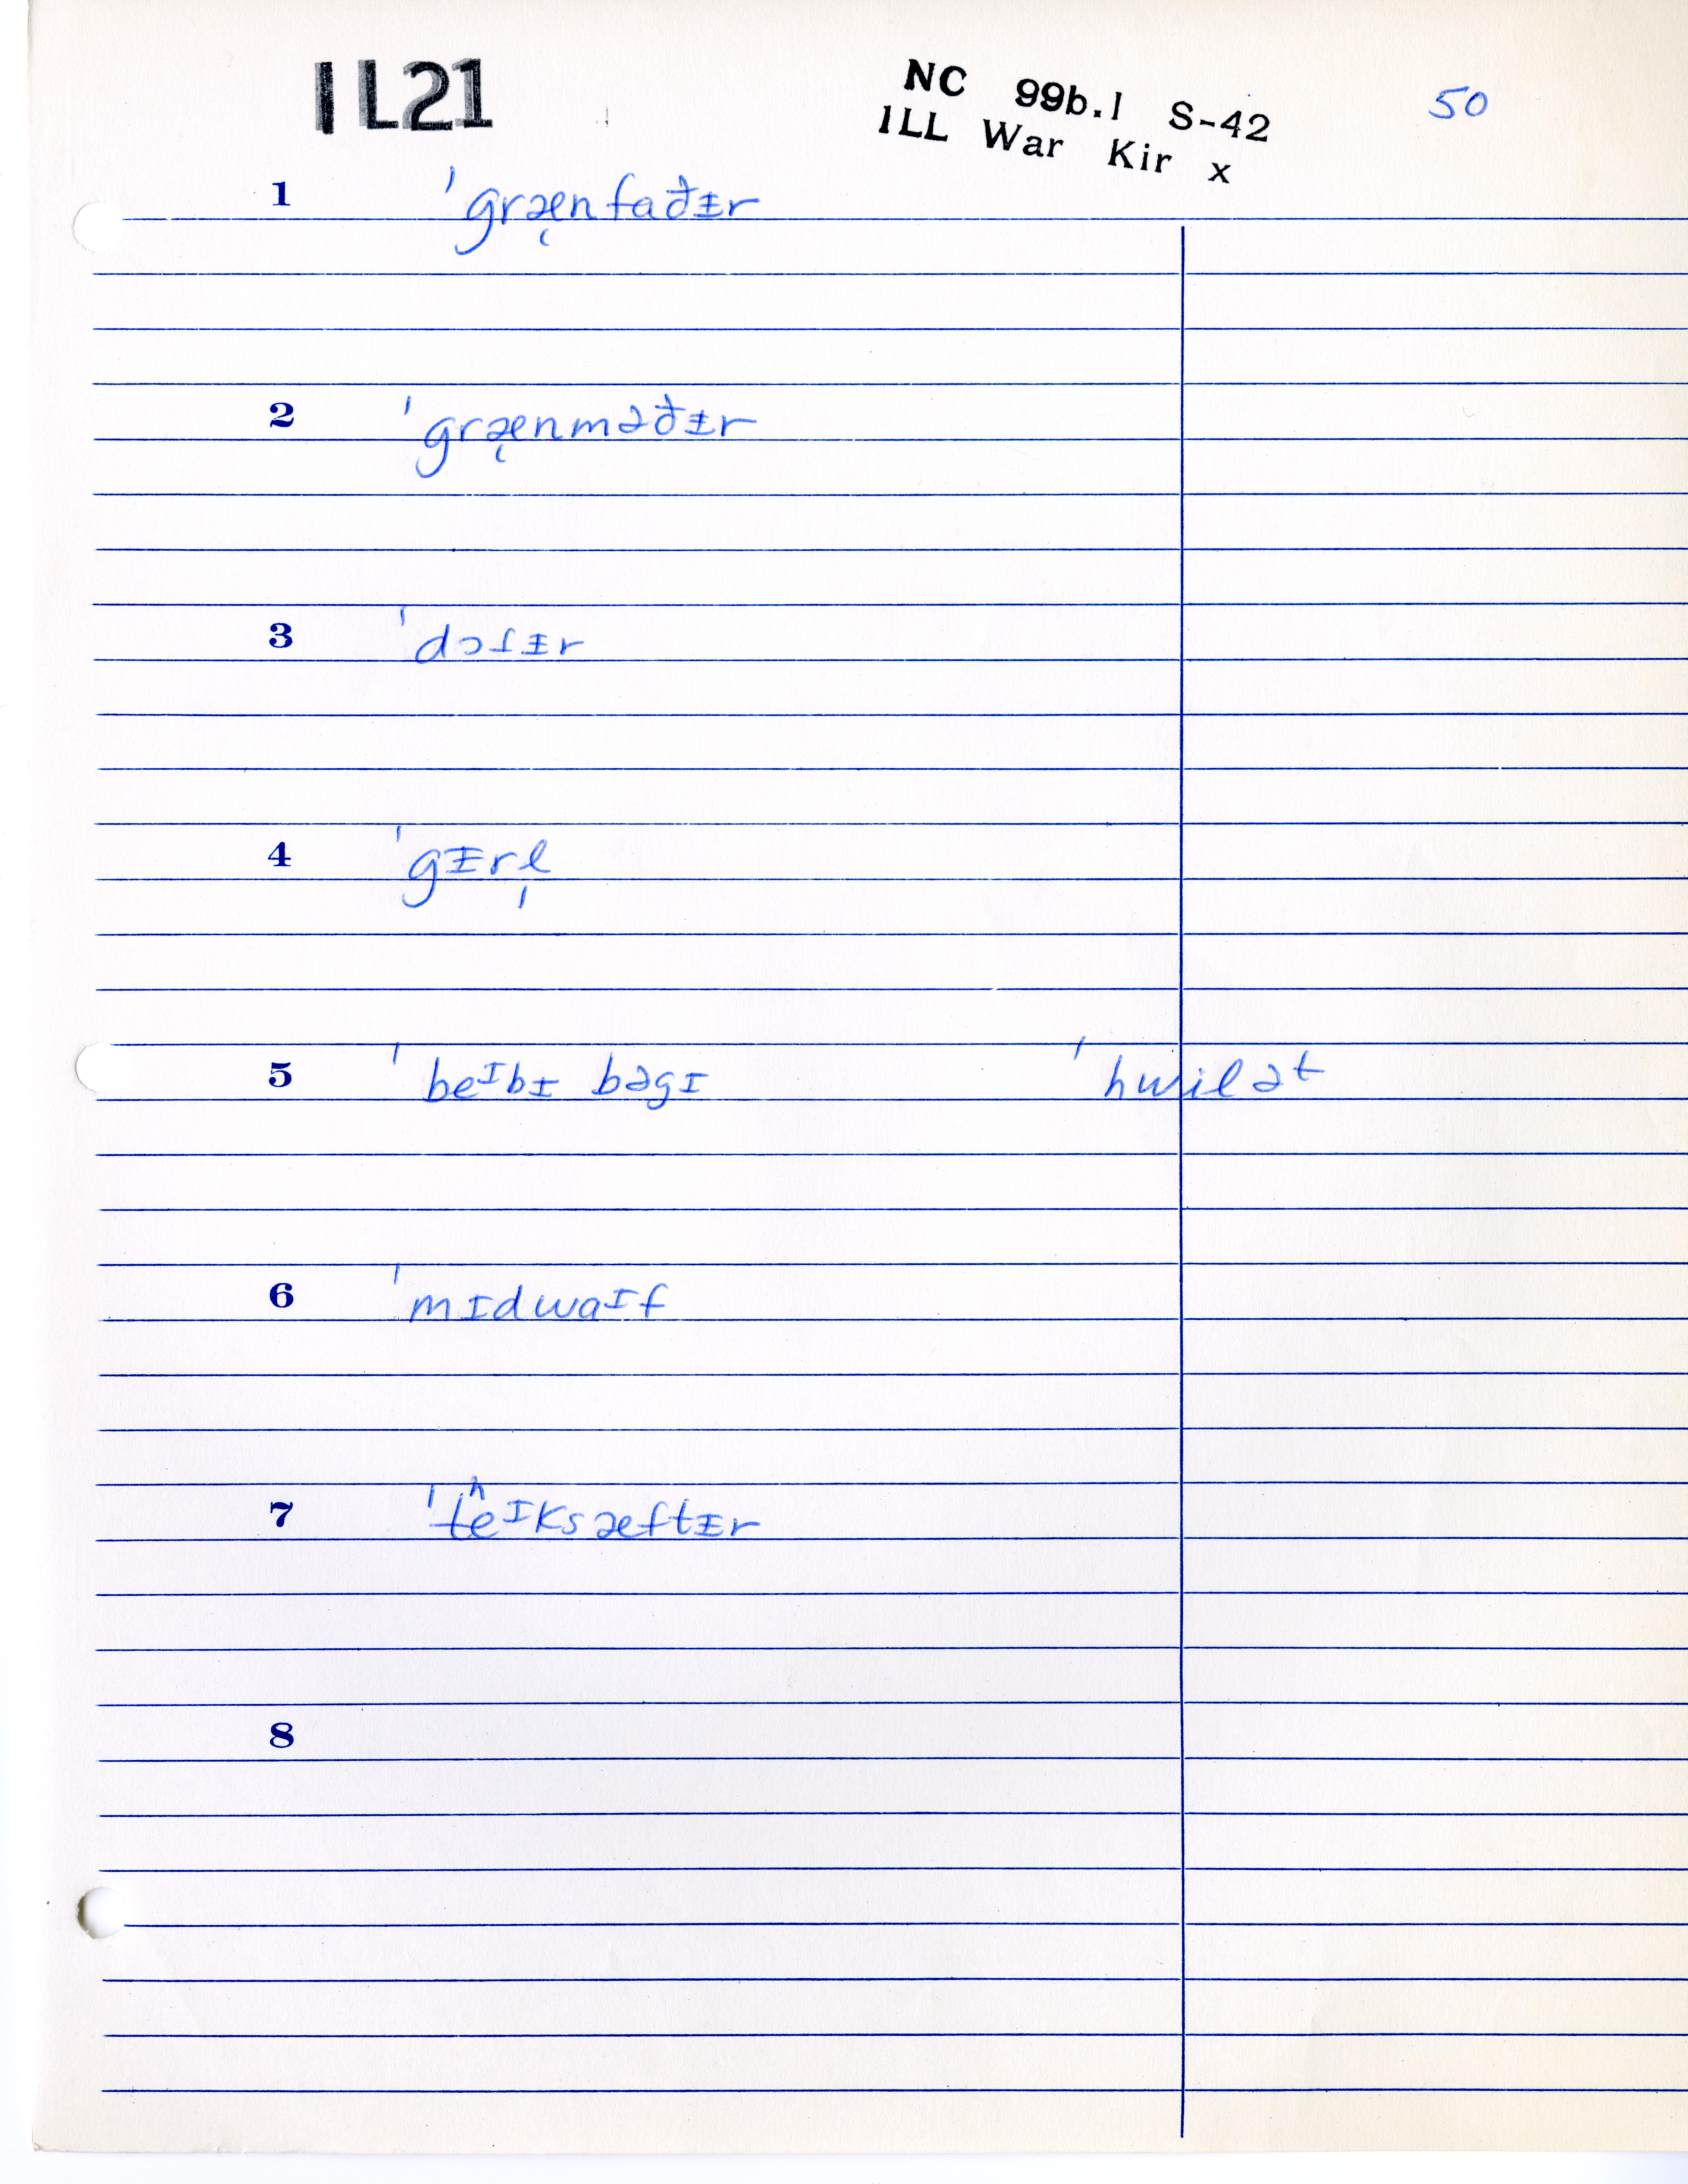 IL21
NC 99b.1 S-42
ILL War Kir x
50
1 ˈgræ̨nfaðᵻr
2 ˈgræ̨nməðᵻr
3 ˈdɔɾᵻr
4 ˈgᵻrl̩
5 ˈbeᴵbᵻ bəgɪ ˈhwilət
6 ˈmɪdwaᴵf
7 ˈt̂eᴵksæftᵻr
8